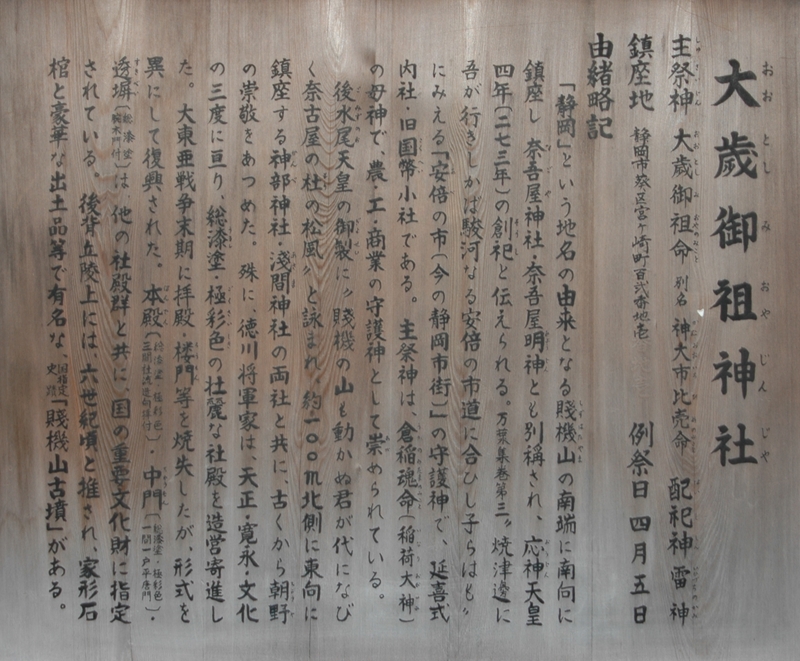 大歳御祖神社
主祭神 大歳御祖命 別名 神大市比売命 配祀神 雷神
鎮座地 静岡市葵区宮ヶ崎町百弐番地壱 例祭日 四月五日
由緒略記
「静岡」という地名の由来となる賤機山の南端に南向に
鎮座し 奈吾屋神社・奈吾屋明神とも別称され、応神天皇
四年(二七三年)の創祀と伝えられる。万葉集巻第三〝焼津邊に
吾が行きしかば駿河なる安倍の市道に合ひし子らはも〟
にみえる「安倍の市(今の静岡市街)」の守護神で、延喜式
内社・旧国幣小社である。主祭神は、倉稲魂命(稲荷大神)
の母神で、農・工・商業の守護神として崇められている。
後水尾天皇の御製に〝賤機の山も動かぬ君が代になび
く奈古屋の杜の松風〟と詠まれ、約一〇〇m北側に東向に
鎮座する神部神社・淺間神社の両社と共に、古くから朝野
の崇敬をあつめた。殊に、徳川将軍家は、天正・寛永・文化
の三度に亘り、総漆塗・極彩色の壮麗な社殿を造営寄進し
た。大東亜戦争末期に拝殿 楼門等を焼失したが、形式を
異にして復興された。本殿(総漆塗・極彩色 三間社流造向拝付)・中門(総漆塗・極彩色 一間一戸平唐門)・
透塀(総漆塗 門付)は、他の社殿群と共に、国の重要文化財に指定
されている。後背丘陵上には、六世紀頃と推され、家形石
棺と豪華な出土品等で有名な、国指定史跡「賤機山古墳」がある。